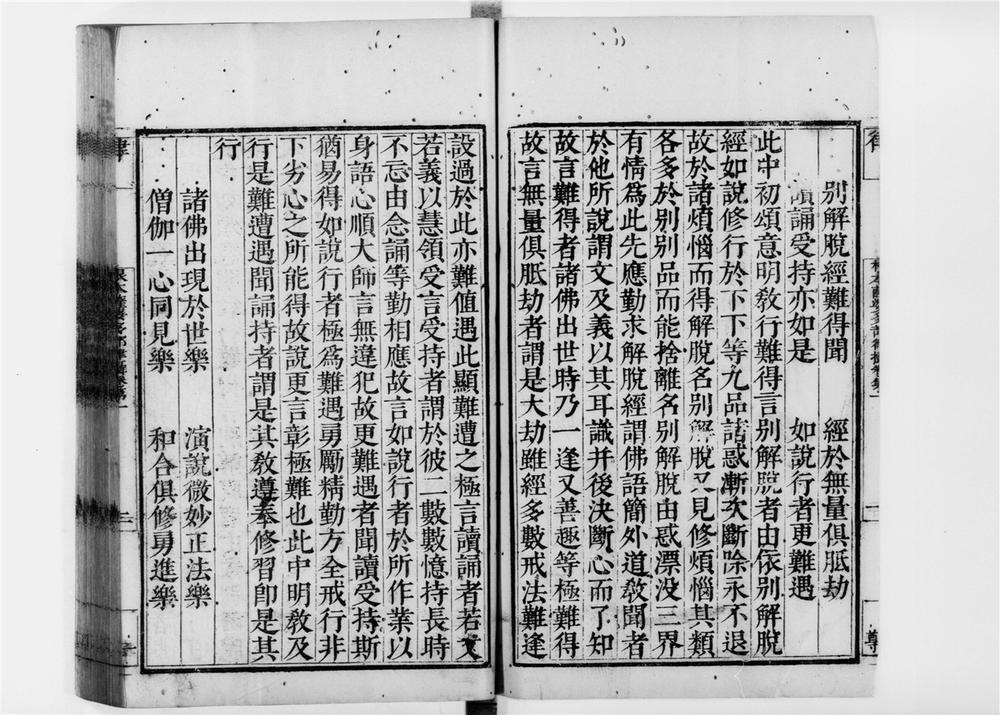 別解脫經難得聞　經於無量俱胝劫
讀誦受持亦如是　如說行者更難遇
此中初頌意明敎行難得言別解脫者由依別解脫
經如說修行於下下等九品諸惑漸次斷除永不退
故於諸煩惱而得解脫名別解脫又見修煩惱其類
各多於別別品而能捨離名別解脫由惑漂没三界
有情爲此先應勤求解脫經謂佛語簡外道敎聞者
於他所說謂文及義以其耳識并後決斷心而了知
故言難得者諸佛出世時乃一逢又善趣等極難得
故言無量俱胝劫者謂是大劫雖經多數戒法難逢
設過於此亦難值遇此顯難遭之極言讀誦者若文
若義以慧領受言受持者謂於彼二數數憶持長時
不忘由念誦等勤相應故言如說行者於所作業以
身語心順大師言無違犯故更難遇者聞讀受持斯
猶易得如說行者極爲難遇勇勵精勤方全戒行非
下劣心之所能得故說更言彰極難也此中明敎及
行是難遭遇聞誦持者謂是其敎遵奉修習卽是其
行
諸佛出現於世樂　演說微妙正法樂
僧伽一心同見樂　和合俱修勇進樂